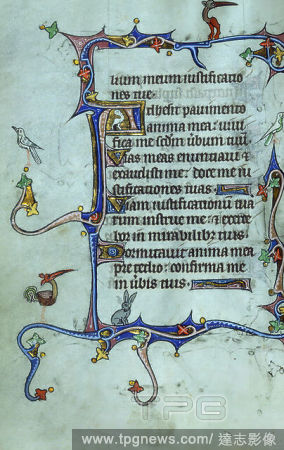 uum meum iustificatio
nes tue
Adhesit pauimento
anima mea: uiui
fica me sedm ubum tuu
Vias meas enuntiaui et
exaudisti me: doce me iu
stificationes tuas.
Viam iustificationu tua
rum instrue me: et exerce
bor in mirabilibz tuis.
Dormitauit anima mea
pre tedio: confirma me
in ubis tuis.
TPG
www.tpgnews.com/達志影像